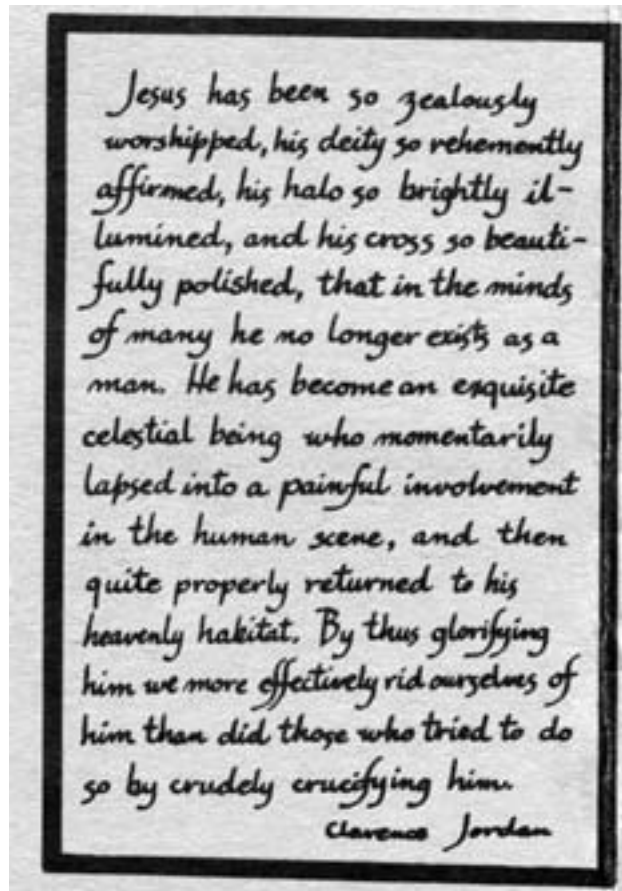 Jesus has been so zealously
worshipped, his deity so vehemently
affirmed, his halo so brightly il-
lumined, and his cross so beauti-
fully polished, that in the minds
of many he no longer exists as a
man. He has become an exquisite
celestial being who momentarily
lapsed into a painful involvement
in the human scene, and then
quite properly returned to his
heavenly habitat. By thus glorifying
him we more effectively rid ourselves of
him than did those who tried to do
so by crudely crucifying him.
Clarence Jordan